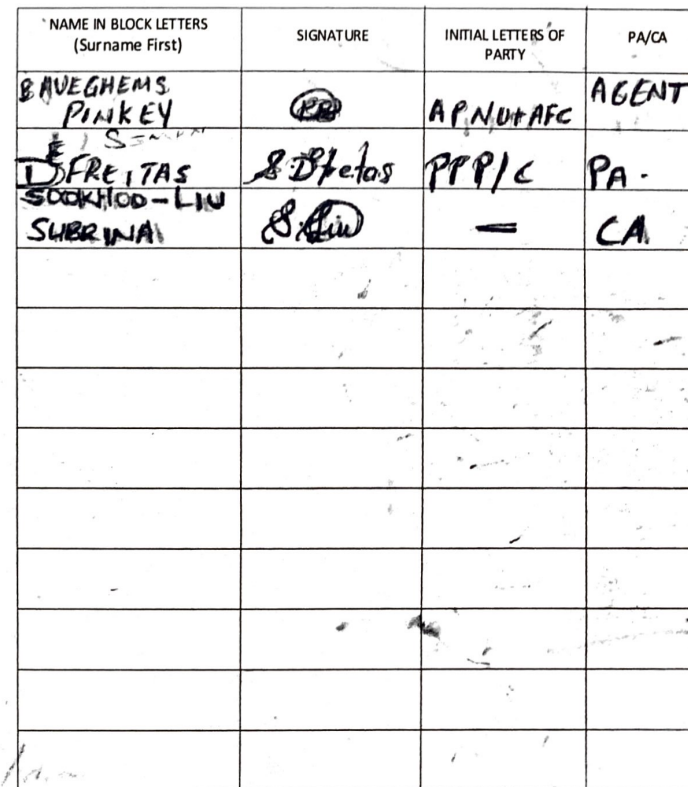 NAME IN BLOCK LETTERS
(Surname First)
SIGNATURE
INITIAL LETTERS OF
PARTY
PA/CA
BAVEGHEMS
PINKEY
APNU+AFC
AGENT
DE FREITAS
S. Dfretas
PPP/C
PA.
SOOKHOO-LIU
SUBRINA
S. Liu
–
CA